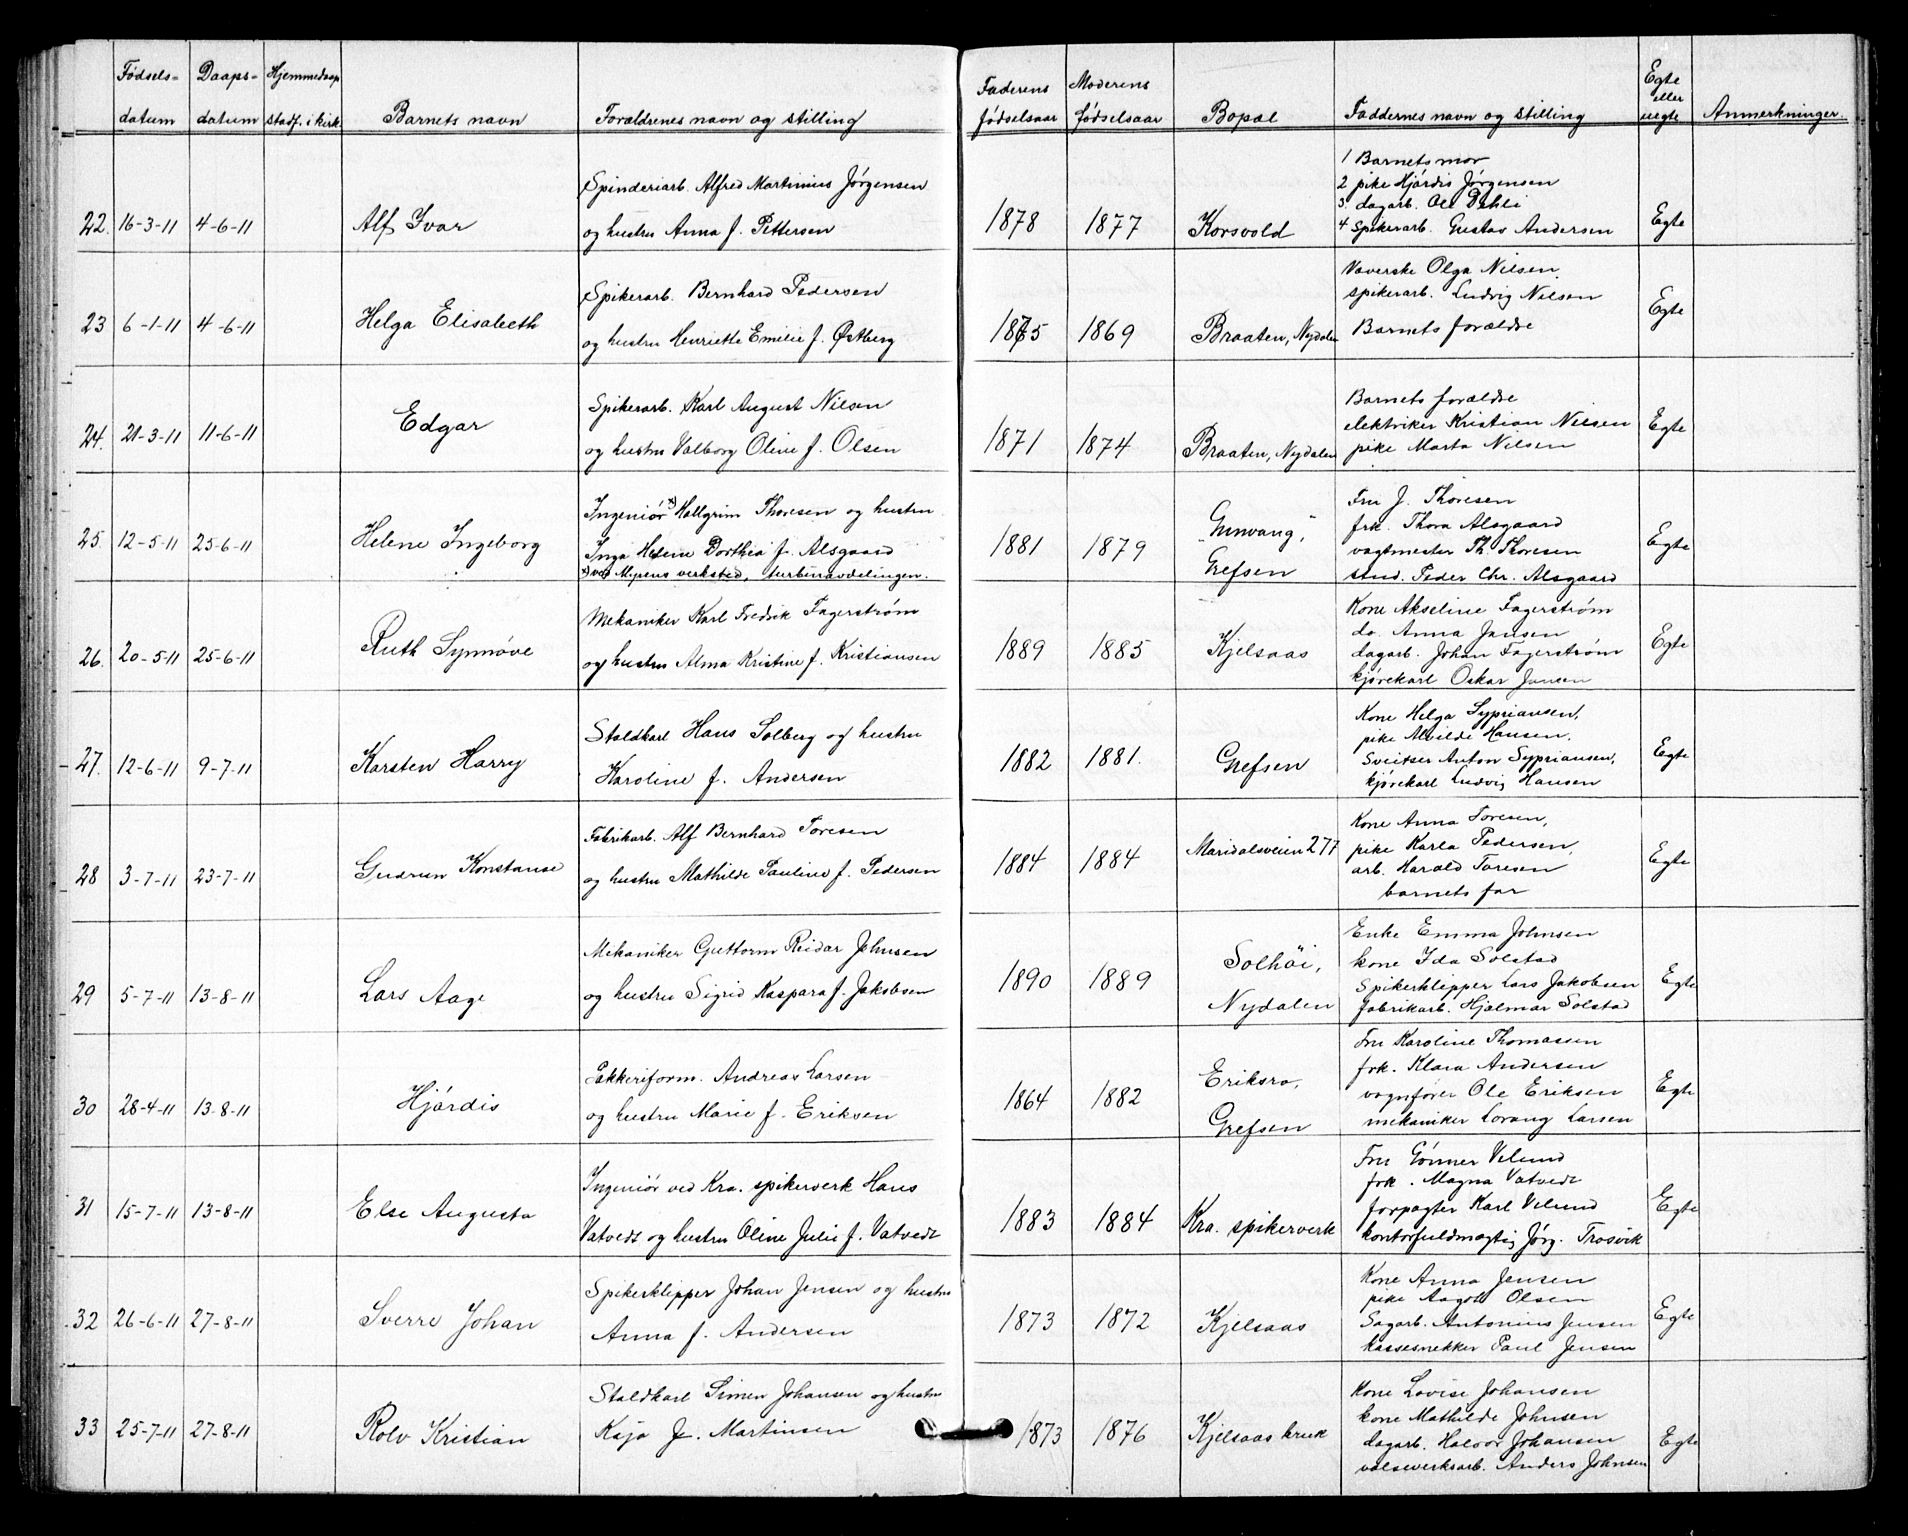 Fødsels- Daaps- Hjemmedaap
datum datum stadf. i kirk. Barnets navn Forældrenes navn og stilling
Faderens Moderens Egte
fødselsaar fødselsaar Bopæl Faddernes navn og stilling eller Anmerkninger.
uegte
22. 16-3-11 4-6-11 Alf Ivar
Spinderiarb. Alfred Martinius Jørgensen
og hustru Anna f. Pettersen
1878 1877 Korsvold
1 Barnets mor
2 pike Hjørdis Jørgensen
3. dagarb. Ole Dehli
4 Spikerarb. Gustav Andersen
Egte
23 6-1-11 4-6-11 Helga Elisabeth
Spikerarb. Bernhard Pedersen
og hustru Henriette Emilie f. Østberg
1875 1869 Braaten, Nydalen
Væverske Olga Nilsen,
spikerarb. Ludvig Nilsen
Barnets forældre
Egte
24. 21-3-11 11-6-11 Edgar
Spikerarb. Karl August Nilsen
og hustru Valborg Oline f. Olsen
1871 1874 Braaten, Nydalen
Barnets forældre
elektriker Kristian Nilsen
pike Marta Nilsen
Egte
25. 12-5-11 25-6-11 Helene Ingeborg
Ingeniør x) Hallgrim Thoresen og hustru
Inga Helene Dorthea f. Alsgaard
x) ved Myrens verksted, turbinavdelingen.
1881 1879 "Grinvang,"
Grefsen
Fru J. Thoresen
frk. Thora Alsgaard
vagtmester Th. Thoresen
stud. Peder Chr. Alsgaard
Egte
26. 20-5-11 25-6-11 Ruth Synnøve
Mekaniker Karl Fredrik Fagerstrøm
og hustru Alma Kristine f. Kristiansen
1889 1885 Kjelsaas
Kone Akseline Fagerstrøm
do. Anna Jansen
dagarb. Johan Fagerstrøm
kjørekarl Oskar Jansen
Egte
27. 12-6-11 9-7-11 Karsten Harry
Staldkarl Hans Solberg og hustru
Karoline f. Andersen
1882 1881. Grefsen
Kone Helga Sypriansen,
pike Alvilde Hansen,
Sveitser Anton Sypriansen,
kjørekarl Ludvig Hansen
Egte
28 3-7-11 23-7-11 Gudrun Konstanse
Fabrikarb. Alf Bernhard Toresen
og hustru Mathilde Pauline f. Pedersen
1884 1884 Maridalsveien 277
Kone Anna Toresen,
pike Karla Pedersen,
arb. Harald Toresen
barnets far
Egte
29 5-7-11 13-8-11 Lars Aage
Mekaniker Guttorm Reidar Johnsen
og hustru Sigrid Kaspara f. Jakobsen
1890 1889 Solhöi,
Nydalen
Enke Emma Johnsen
kone Ida Solstad
Spikerklipper Lars Jakobsen
fabrikarb. Hjalmar Solstad
Egte
30 28-4-11 13-8-11 Hjørdis
Lakkeriform. Andreas Larsen
og hustru Marie f. Eriksen
1864 1882 Eriksro,
Grefsen
Fru Karoline Thomassen
frk. Klara Andersen
vognfører Ole Eriksen
mekaniker Lorang Larsen
Egte
31 15-7-11 13-8-11 Else Augusta
Ingeniør ved Kra. spikerverk Hans
Vatvedt og hustru Oline Julie f. Vatvedt
1883 1884 Kra. spikerverk
Fru Gönner Velund
frk. Magna Vatvedt
forpagter Karl Velund
kontorfuldmægtig Jørg. Trosvik
Egte
32 26-6-11 27-8-11 Sverre Johan
Spikerklipper Johan Jensen og hustru
Anna f. Andersen
1873 1872 Kjelsaas
Kone Anna Jensen
pike Aagot Olsen
Sagarb. Antonius Jensen
kassesnekker Paul Jensen
Egte
33 25-7-11 27-8-11 Rolv Kristian
Staldkarl Simen Johansen og hustru
Kaja f. Martinsen
1873 1876 Kjelsaas bruk
Kone Lovise Johansen
kone Mathilde Johnsen
dagarb. Halvor Johansen
valseverksarb. Anders Johnsen
Egte